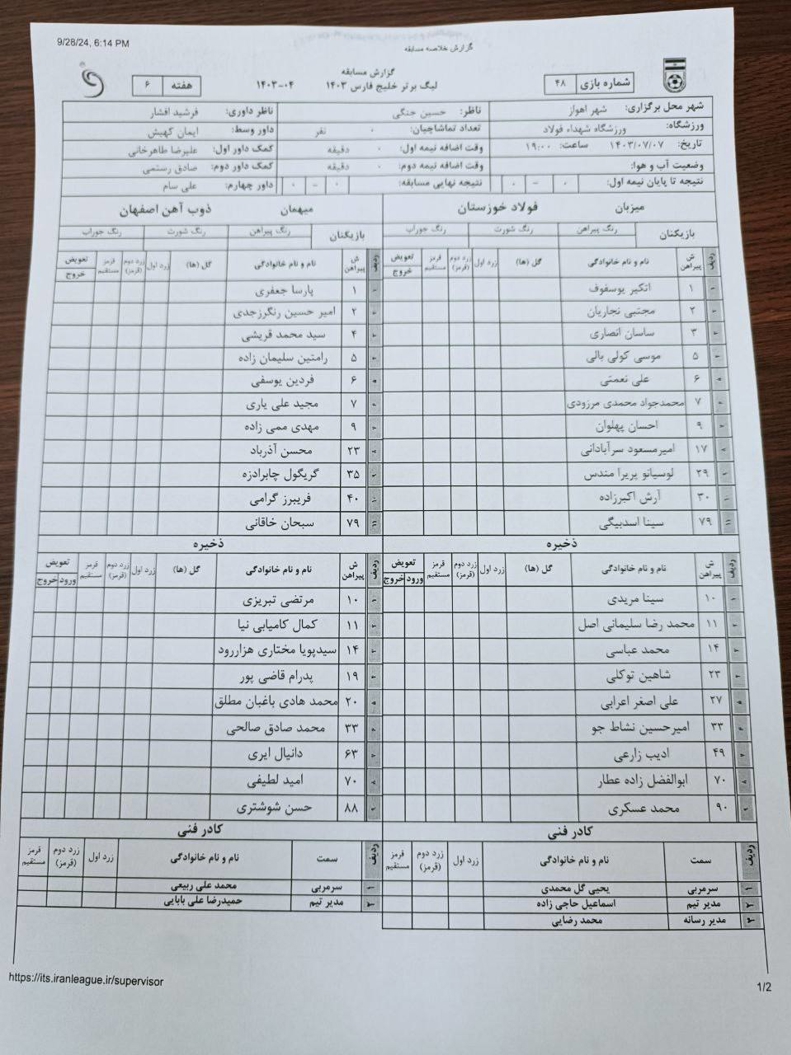 9/28/24, 6:14 PM
گزارش خلاصه مسابقه
گزارش مسابقه
لیگ برتر خلیج فارس ۱۴۰۳ ۰۴-۱۴۰۳
شماره بازی ۴۸
هفته ۶
شهر محل برگزاری: شهر اهواز ناظر: حسین جنگی ناظر داوری: فرشید افشار
ورزشگاه: ورزشگاه شهداء فولاد تعداد تماشاچیان: ۰ نفر داور وسط: ایمان کهیش
تاریخ: ۱۴۰۳/۰۷/۰۷ ساعت: ۱۹:۰۰ وقت اضافه نیمه اول: ۰ دقیقه کمک داور اول: علیرضا طاهرخانی
وضعیت آب و هوا: وقت اضافه نیمه دوم: ۰ دقیقه کمک داور دوم: صادق رستمی
نتیجه تا پایان نیمه اول: ۰ - ۰ نتیجه نهایی مسابقه: ۰ - ۰ داور چهارم: علی سام
میزبان فولاد خوزستان
بازیکنان رنگ پیراهن رنگ شورت رنگ جوراب
ردیف ش پیراهن نام و نام خانوادگی گل (ها) زرد اول زرد دوم (قرمز) قرمز مستقیم تعویض خروج
۱ ۱ اتکیر یوسفوف
۲ ۲ مجتبی نجاریان
۳ ۳ ساسان انصاری
۴ ۵ موسی کولی بالی
۵ ۶ علی نعمتی
۶ ۷ محمدجواد محمدی مرزودی
۷ ۹ احسان پهلوان
۸ ۱۷ امیرمسعود سرآبادانی
۹ ۲۹ لوسیانو پریرا مندس
۱۰ ۳۰ آرش اکبرزاده
۱۱ ۷۹ سینا اسدبیگی
ذخیره
ردیف ش پیراهن نام و نام خانوادگی گل (ها) زرد اول زرد دوم (قرمز) قرمز مستقیم تعویض ورود خروج
۱ ۱۰ سینا مریدی
۲ ۱۱ محمد رضا سلیمانی اصل
۳ ۱۴ محمد عباسی
۴ ۲۳ شاهین توکلی
۵ ۲۷ علی اصغر اعرابی
۶ ۳۳ امیرحسین نشاط جو
۷ ۴۹ ادیب زارعی
۸ ۷۰ ابوالفضل زاده عطار
۹ ۹۰ محمد عسکری
کادر فنی
ردیف سمت نام و نام خانوادگی زرد اول زرد دوم (قرمز) قرمز مستقیم
۱ سرمربی یحیی گل محمدی
۲ مدیر تیم اسماعیل حاجی زاده
۳ مدیر رسانه محمد رضایی
میهمان ذوب آهن اصفهان
بازیکنان رنگ پیراهن رنگ شورت رنگ جوراب
ردیف ش پیراهن نام و نام خانوادگی گل (ها) زرد اول زرد دوم (قرمز) قرمز مستقیم تعویض خروج
۱ ۱ پارسا جعفری
۲ ۲ امیر حسین رنگرزجدی
۳ ۴ سید محمد قریشی
۴ ۵ رامتین سلیمان زاده
۵ ۶ فردین یوسفی
۶ ۷ مجید علی یاری
۷ ۹ مهدی ممی زاده
۸ ۲۳ محسن آذرباد
۹ ۳۵ گریگول چابرادزه
۱۰ ۴۰ فریبرز گرامی
۱۱ ۷۹ سبحان خاقانی
ذخیره
ردیف ش پیراهن نام و نام خانوادگی گل (ها) زرد اول زرد دوم (قرمز) قرمز مستقیم تعویض ورود خروج
۱ ۱۰ مرتضی تبریزی
۲ ۱۱ کمال کامیابی نیا
۳ ۱۴ سیدپویا مختاری هزاررود
۴ ۱۹ پدرام قاضی پور
۵ ۲۰ محمد هادی باغبان مطلق
۶ ۳۳ محمد صادق صالحی
۷ ۶۳ دانیال ایری
۸ ۷۰ امید لطیفی
۹ ۸۸ حسن شوشتری
کادر فنی
ردیف سمت نام و نام خانوادگی زرد اول زرد دوم (قرمز) قرمز مستقیم
۱ سرمربی محمد علی ربیعی
۲ مدیر تیم حمیدرضا علی بابایی
https://its.iranleague.ir/supervisor
1/2